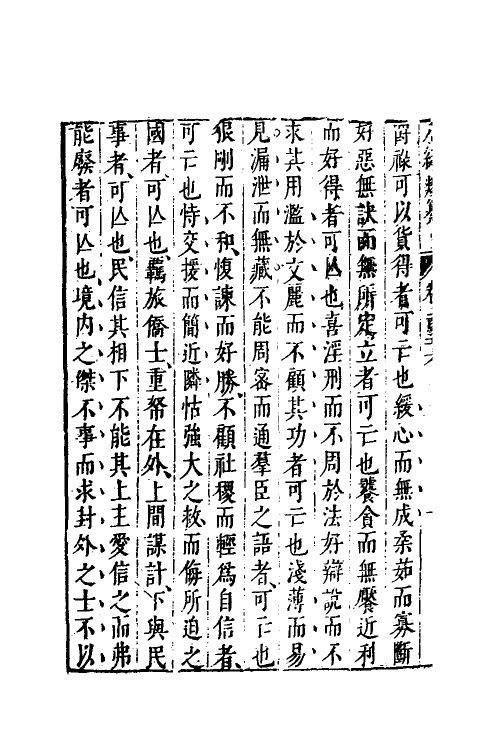 爵祿可以貨得者可亡也緩心而無成柔茹而寡斷
好惡無訣而無所定立者可亡也饕食而無饜近利
而好得者可亾也喜淫刑而不周於法好辯說而不
求其用濫於文麗而不顧其功者可亡也淺薄而易
見漏泄而無藏不能周密而通羣臣之語者可亡也
狠剛而不和愎諫而好勝不顧社稷而輕爲自信者
可亡也恃交援而簡近隣怙強大之救而侮所迫之
國者可亾也羈旅僑士重帑在外上間謀計下與民
事者可亾也民信其相下不能其上主愛信之而弗
能廢者可亾也境内之傑不事而求封外之士不以